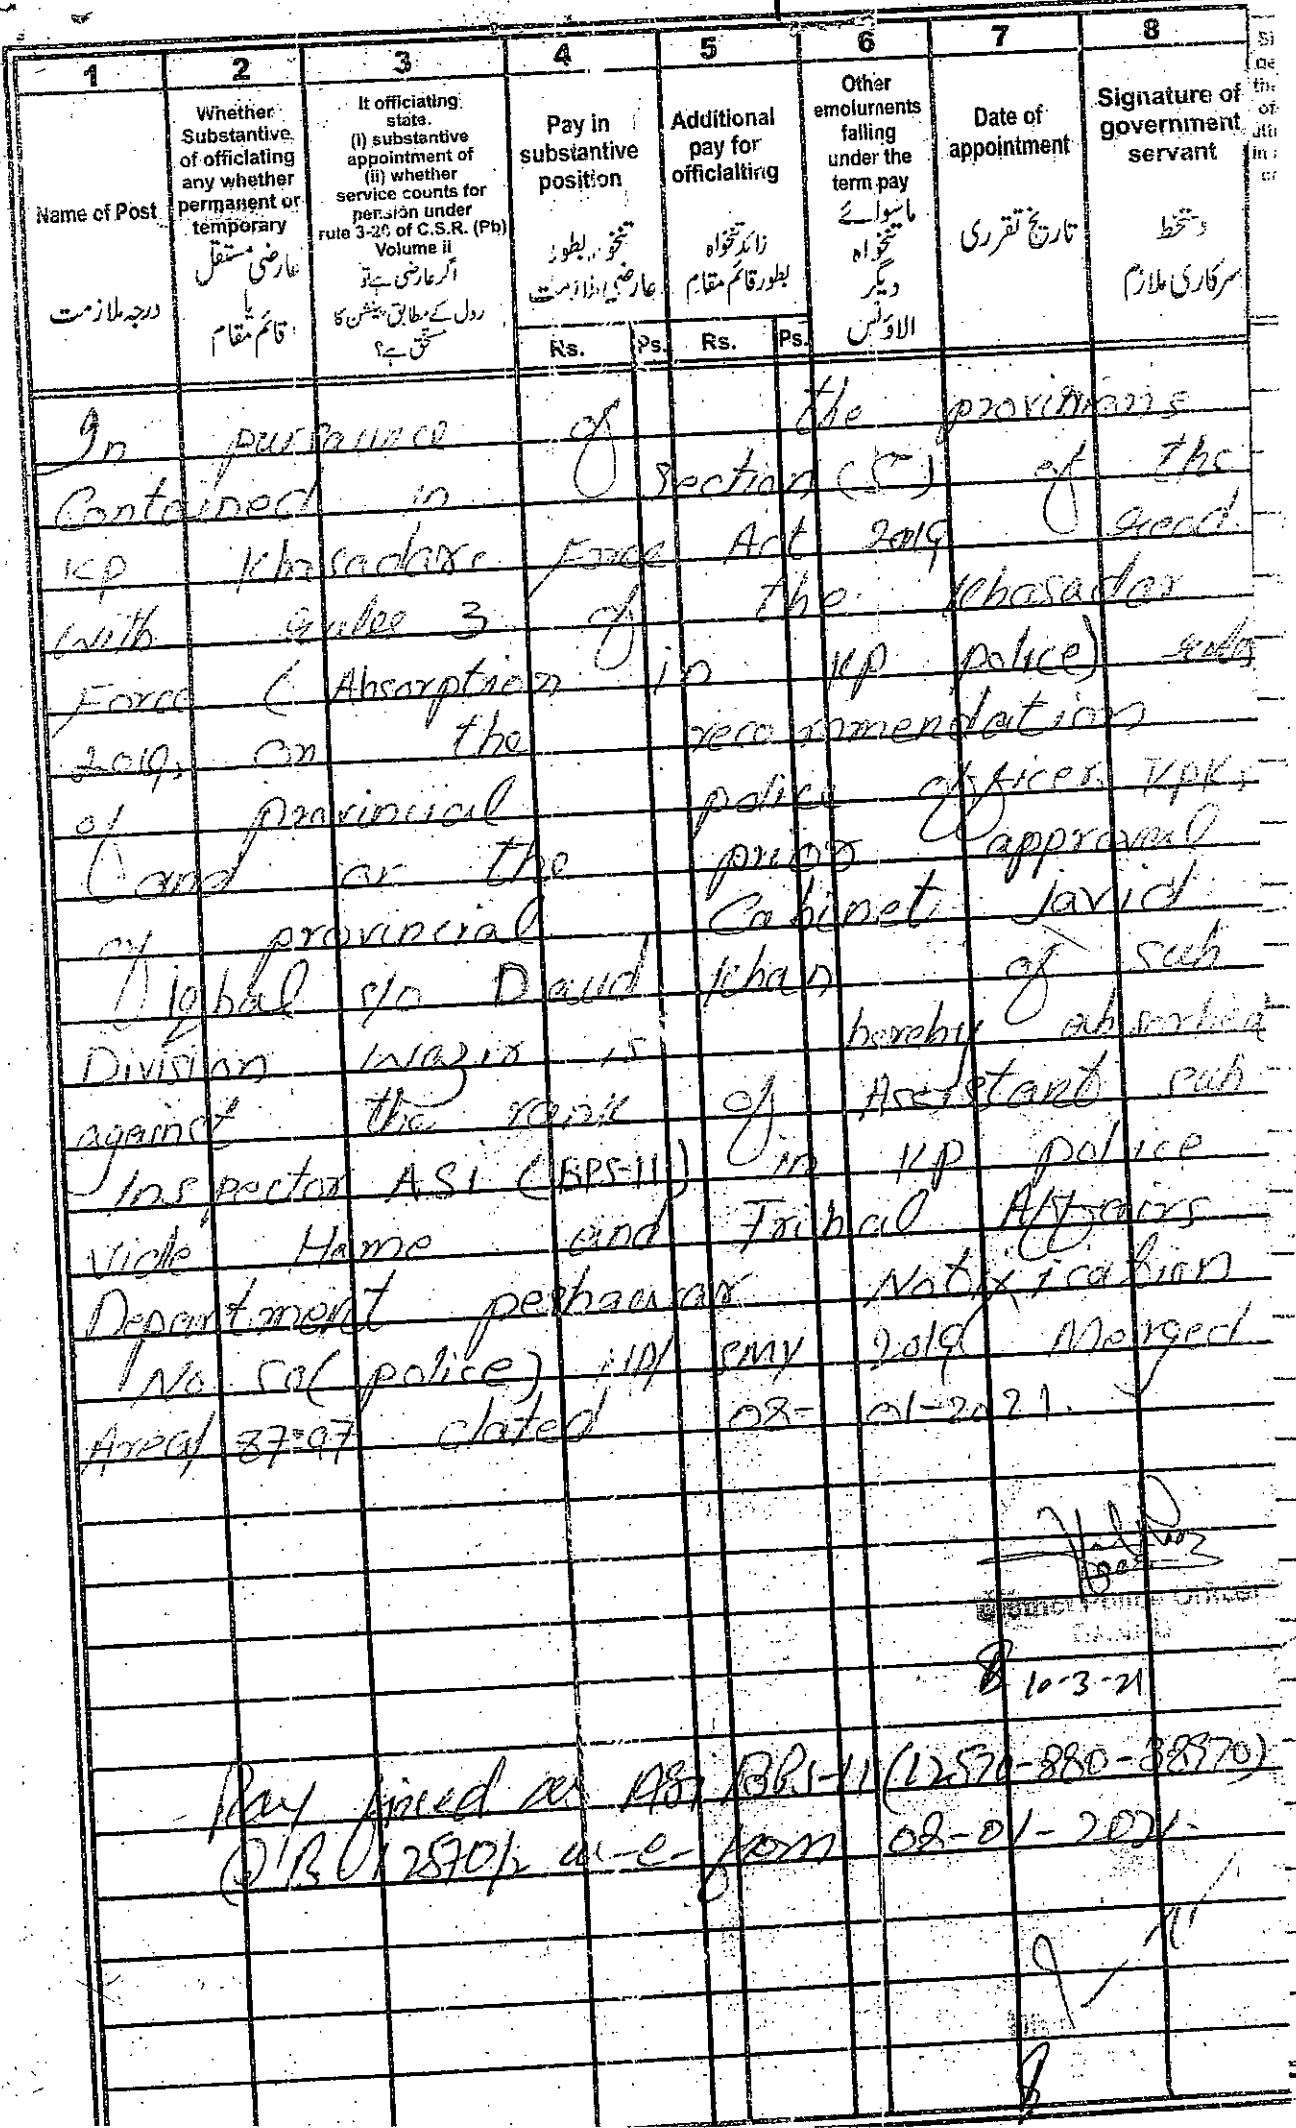 1 2 3 4 5 6 7 8
Name of Post
درجہ ملازمت
Whether
Substantive
of officlating
any whether
permanent or
temporary
عارضی مستقل
یا
قائم مقام
It officiating
state.
(i) substantive
appointment of
(ii) whether
service counts for
pension under
rute 3-20 of C.S.R. (Pb)
Volume ii
اگر عارضی ہے تو
رول کے مطابق پینشن کا
مستحق ہے؟
Pay in
substantive
position
Rs. Ps.
Additional
pay for
officlalting
زائد تنخواہ
بطور قائم مقام
Rs. Ps.
Other
emoluments
falling
under the
term pay
ماسوائے
تنخواہ
دیگر
الاؤنس
Date of
appointment
تاریخ تقرری
Signature of
government
servant
دستخط
سرکاری ملازم
In pursaunce of the provinions
Contained in Section (5) of the
KP Khasadare Force Act 2019 read
with rulee 3 of the Khasadar
Force (Absorption in KP police) rules
2019, on the recommendation
of provincial police officer KPK,
and or the prior approval
of provincial Cabinet Javid
Iqbal s/o Daud Khan of sub
Division wazir is hereby absorbed
against the rank of Assistant sub
Inspector ASI (BPS-11) in KP police
vide Home and Tribal Affairs
Department peshawar Notification
No so(police) HD/ SMY 2019 Merged
Area/ 87-97 dated 08-01-2021.
District Police Officer
10-3-21
Pay fixed as ASI BPS-11 (12570-880-38970)
@ Rs 12570/- w-e- from 08-01-2021-